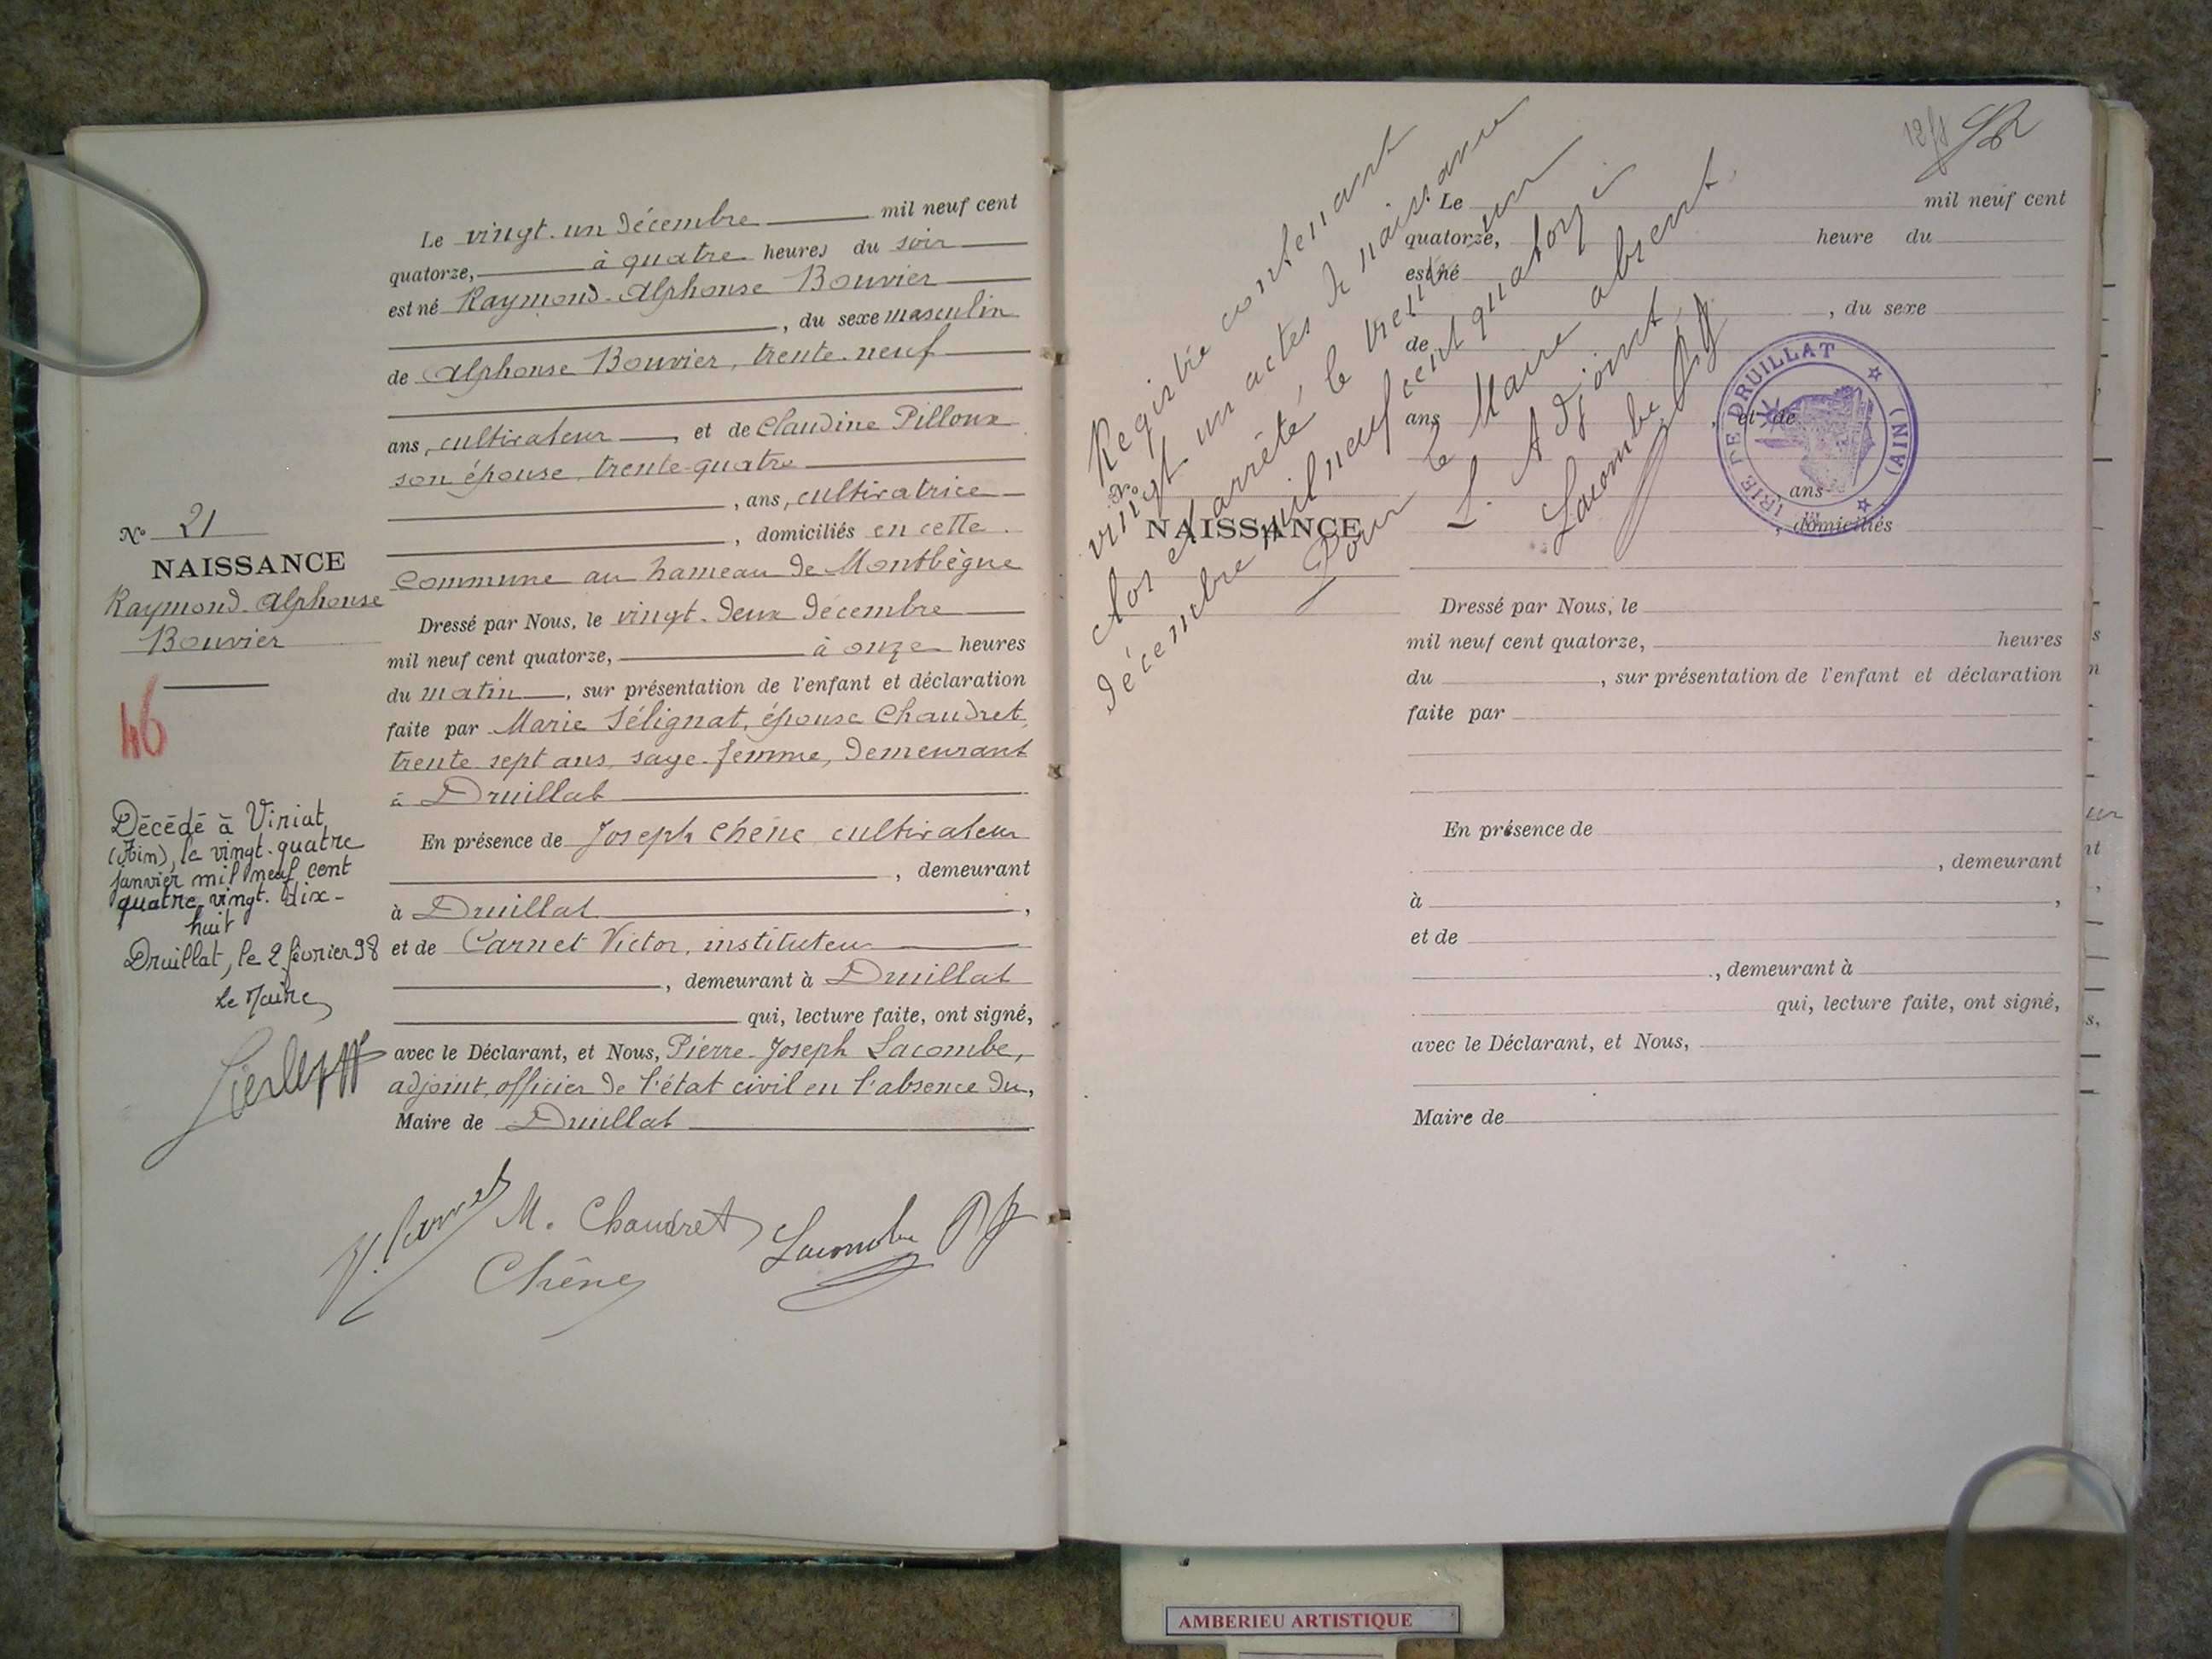 Le vingt-un décembre mil neuf cent
quatorze, à quatre heures du soir
est né Raymond-Alphonse Bouvier
, du sexe masculin
de Alphonse Bouvier, trente-neuf
ans, cultivateur, et de Claudine Pilloux
son épouse, trente-quatre
, ans, cultivatrice
, domiciliés en cette
commune au hameau de Montbègue
Dressé par Nous, le vingt-deux décembre
mil neuf cent quatorze, à onze heures
du matin, sur présentation de l'enfant et déclaration
faite par Marie Sélignat, épouse Chaudret,
trente sept ans, sage-femme, demeurant
à Druillat
En présence de Joseph Chêne, cultivateur
, demeurant
à Druillat,
et de Carnet Victor, instituteur
, demeurant à Druillat
qui, lecture faite, ont signé,
avec le Déclarant, et Nous, Pierre-Joseph Lacombe,
adjoint, officier de l'état civil en l'absence du,
Maire de Druillat
V. Carnet M. Chaudret Lacombe PJ
Chêne
N° 21
NAISSANCE
Raymond-Alphonse
Bouvier
46
Décédé à Viriat
(Ain), le vingt-quatre
janvier mil neuf cent
quatre-vingt-dix-
huit
Druillat, le 2 février 98
Le Maire
Registre contenant
vingt-un actes de naissance
clos et arrêté le trente un
décembre mil neuf cent quatorze
Pour le Maire absent,
L'Adjoint,
Lacombe PJ
MAIRIE DE DRUILLAT (AIN)
N°
NAISSANCE
Le mil neuf cent
quatorze, heure du
est né
, du sexe
de
ans , et de
, ans
, domiciliés
Dressé par Nous, le
mil neuf cent quatorze, heures
du , sur présentation de l'enfant et déclaration
faite par
En présence de
, demeurant
à ,
et de
, demeurant à
qui, lecture faite, ont signé,
avec le Déclarant, et Nous,
Maire de
AMBERIEU ARTISTIQUE